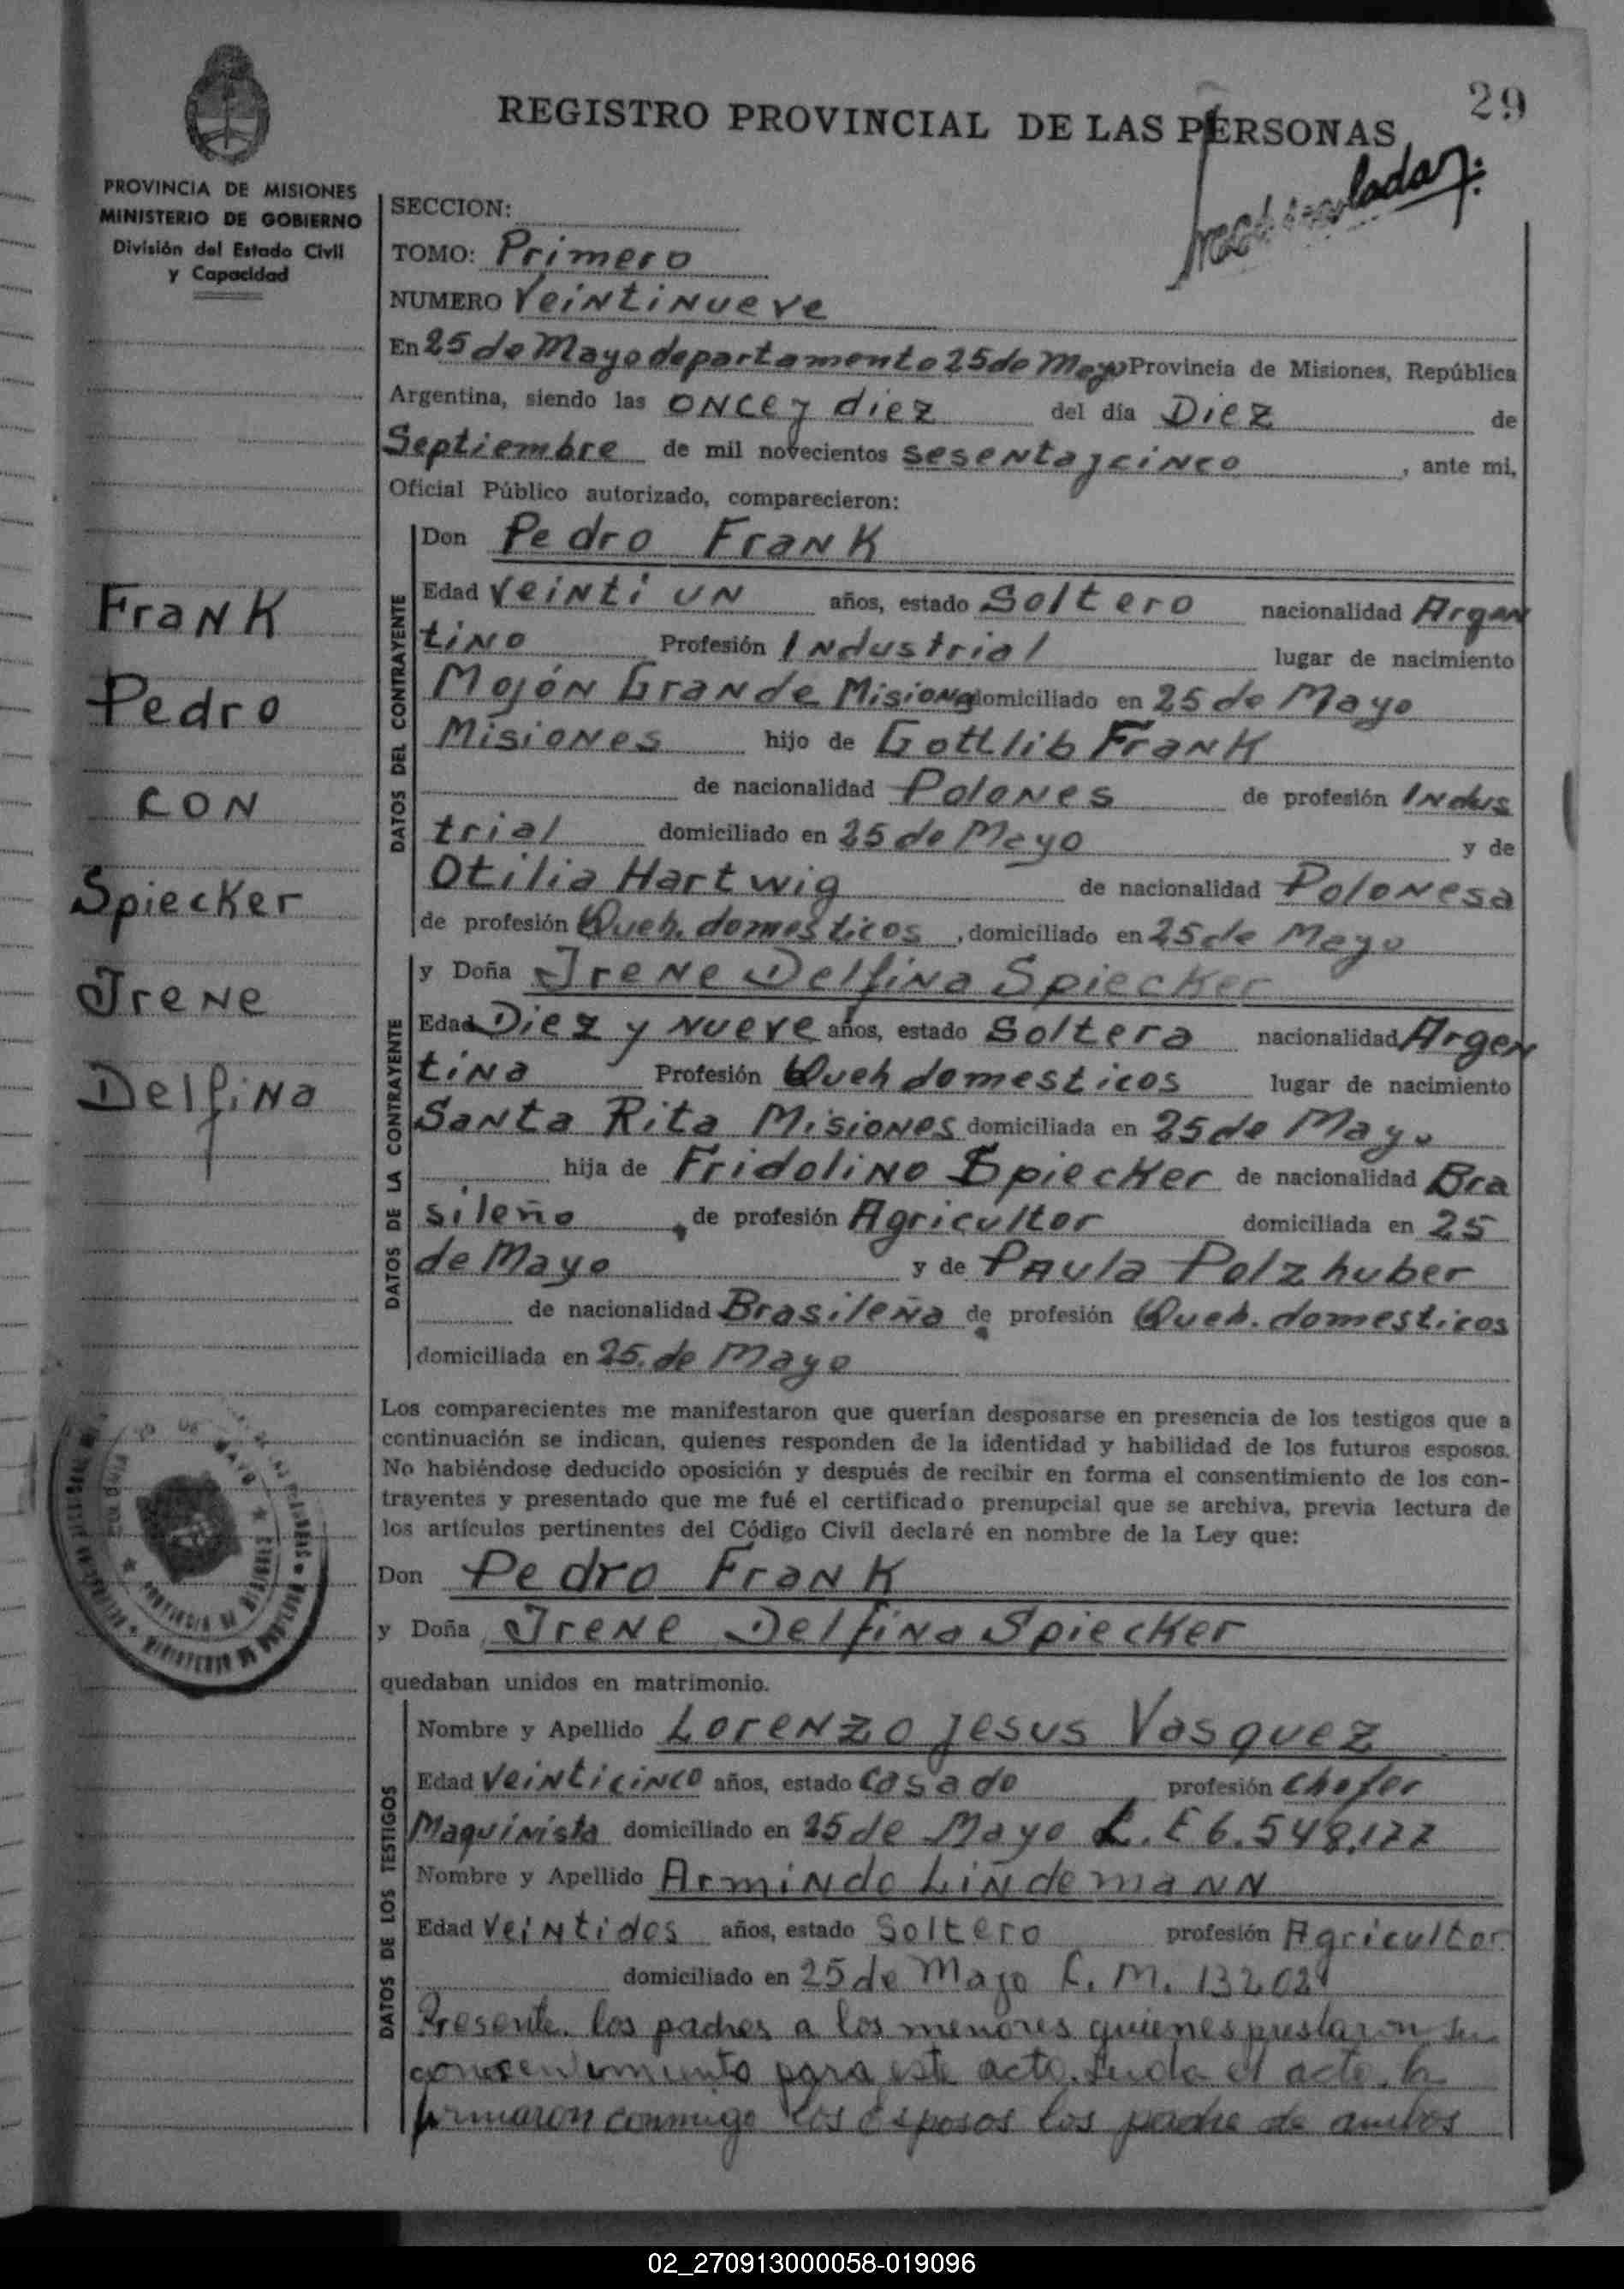 29
REGISTRO PROVINCIAL DE LAS PERSONAS
PROVINCIA DE MISIONES
MINISTERIO DE GOBIERNO
División del Estado Civil
y Capacidad
SECCION:
TOMO: Primero
NUMERO Veintinueve
En 25 de Mayo departamento 25 de Mayo Provincia de Misiones, República
Argentina, siendo las once y diez del día Diez de
Septiembre de mil novecientos sesenta y cinco, ante mi,
Oficial Público autorizado, comparecieron:
Frank
Pedro
con
Spiecker
Irene
Delfina
DATOS DEL CONTRAYENTE
Don Pedro Frank
Edad Veinti un años, estado Soltero nacionalidad Argen
tino Profesión Industrial lugar de nacimiento
Mojón Grande Misiones domiciliado en 25 de Mayo
Misiones hijo de Gottlib Frank
de nacionalidad Polones de profesión Indus
trial domiciliado en 25 de Mayo y de
Otilia Hartwig de nacionalidad Polonesa
de profesión Queh. domesticos, domiciliado en 25 de Mayo
DATOS DE LA CONTRAYENTE
y Doña Irene Delfina Spiecker
Edad Diez y nueve años, estado Soltera nacionalidad Argen
tina Profesión Queh domesticos lugar de nacimiento
Santa Rita Misiones domiciliada en 25 de Mayo
hija de Fridolino Spiecker de nacionalidad Bra
sileño, de profesión Agricultor domiciliada en 25
de Mayo y de Paula Polzhuber
de nacionalidad Brasileña de profesión Queh. domesticos
domiciliada en 25 de Mayo
Los comparecientes me manifestaron que querían desposarse en presencia de los testigos que a
continuación se indican, quienes responden de la identidad y habilidad de los futuros esposos.
No habiéndose deducido oposición y después de recibir en forma el consentimiento de los con-
trayentes y presentado que me fué el certificado prenupcial que se archiva, previa lectura de
los artículos pertinentes del Código Civil declaré en nombre de la Ley que:
Don Pedro Frank
y Doña Irene Delfina Spiecker
quedaban unidos en matrimonio.
DATOS DE LOS TESTIGOS
Nombre y Apellido Lorenzo Jesus Vasquez
Edad Veinticinco años, estado Casado profesión Chofer
Maquinista domiciliado en 25 de Mayo L. E 6.548.177
Nombre y Apellido Armindo Lindemann
Edad Veintidos años, estado Soltero profesión Agricultor
domiciliado en 25 de Mayo L. M. 13202
Presente los padres a los menores quienes prestaron su
consentimiento para este acto. Leida el acta, la
firmaron conmigo los esposos los padre de ambos
02_270913000058-019096